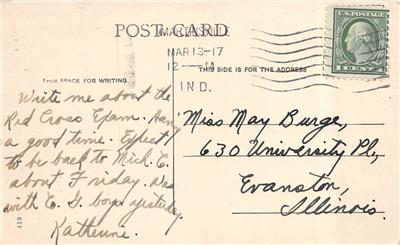 POST CARD
MAR 13-17
12 - M
IND.
U.S. POSTAGE
1 CENT 1
THIS SPACE FOR WRITING
THIS SIDE IS FOR THE ADDRESS
Write me about the
Red Cross Exam.
a good time. Expect
to be back to Mich. C.
about Friday. Was
with C. G. boys yesterday
Katherine.
Miss May Burge,
630 University Pl.,
Evanston,
Illinois.
419